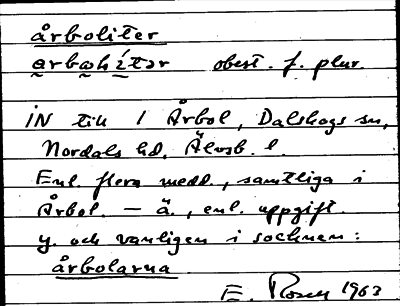 årboliter
arbohítər obest. f. plur.
IN till 1 Årbol, Dalskogs sn,
Nordals hd, Älvsb. l.
Enl. flera medd., samtliga i
Årbol. — ä., enl. uppgift.
y. och vanligen i socknen:
årbolarna
E. Rosén 1963